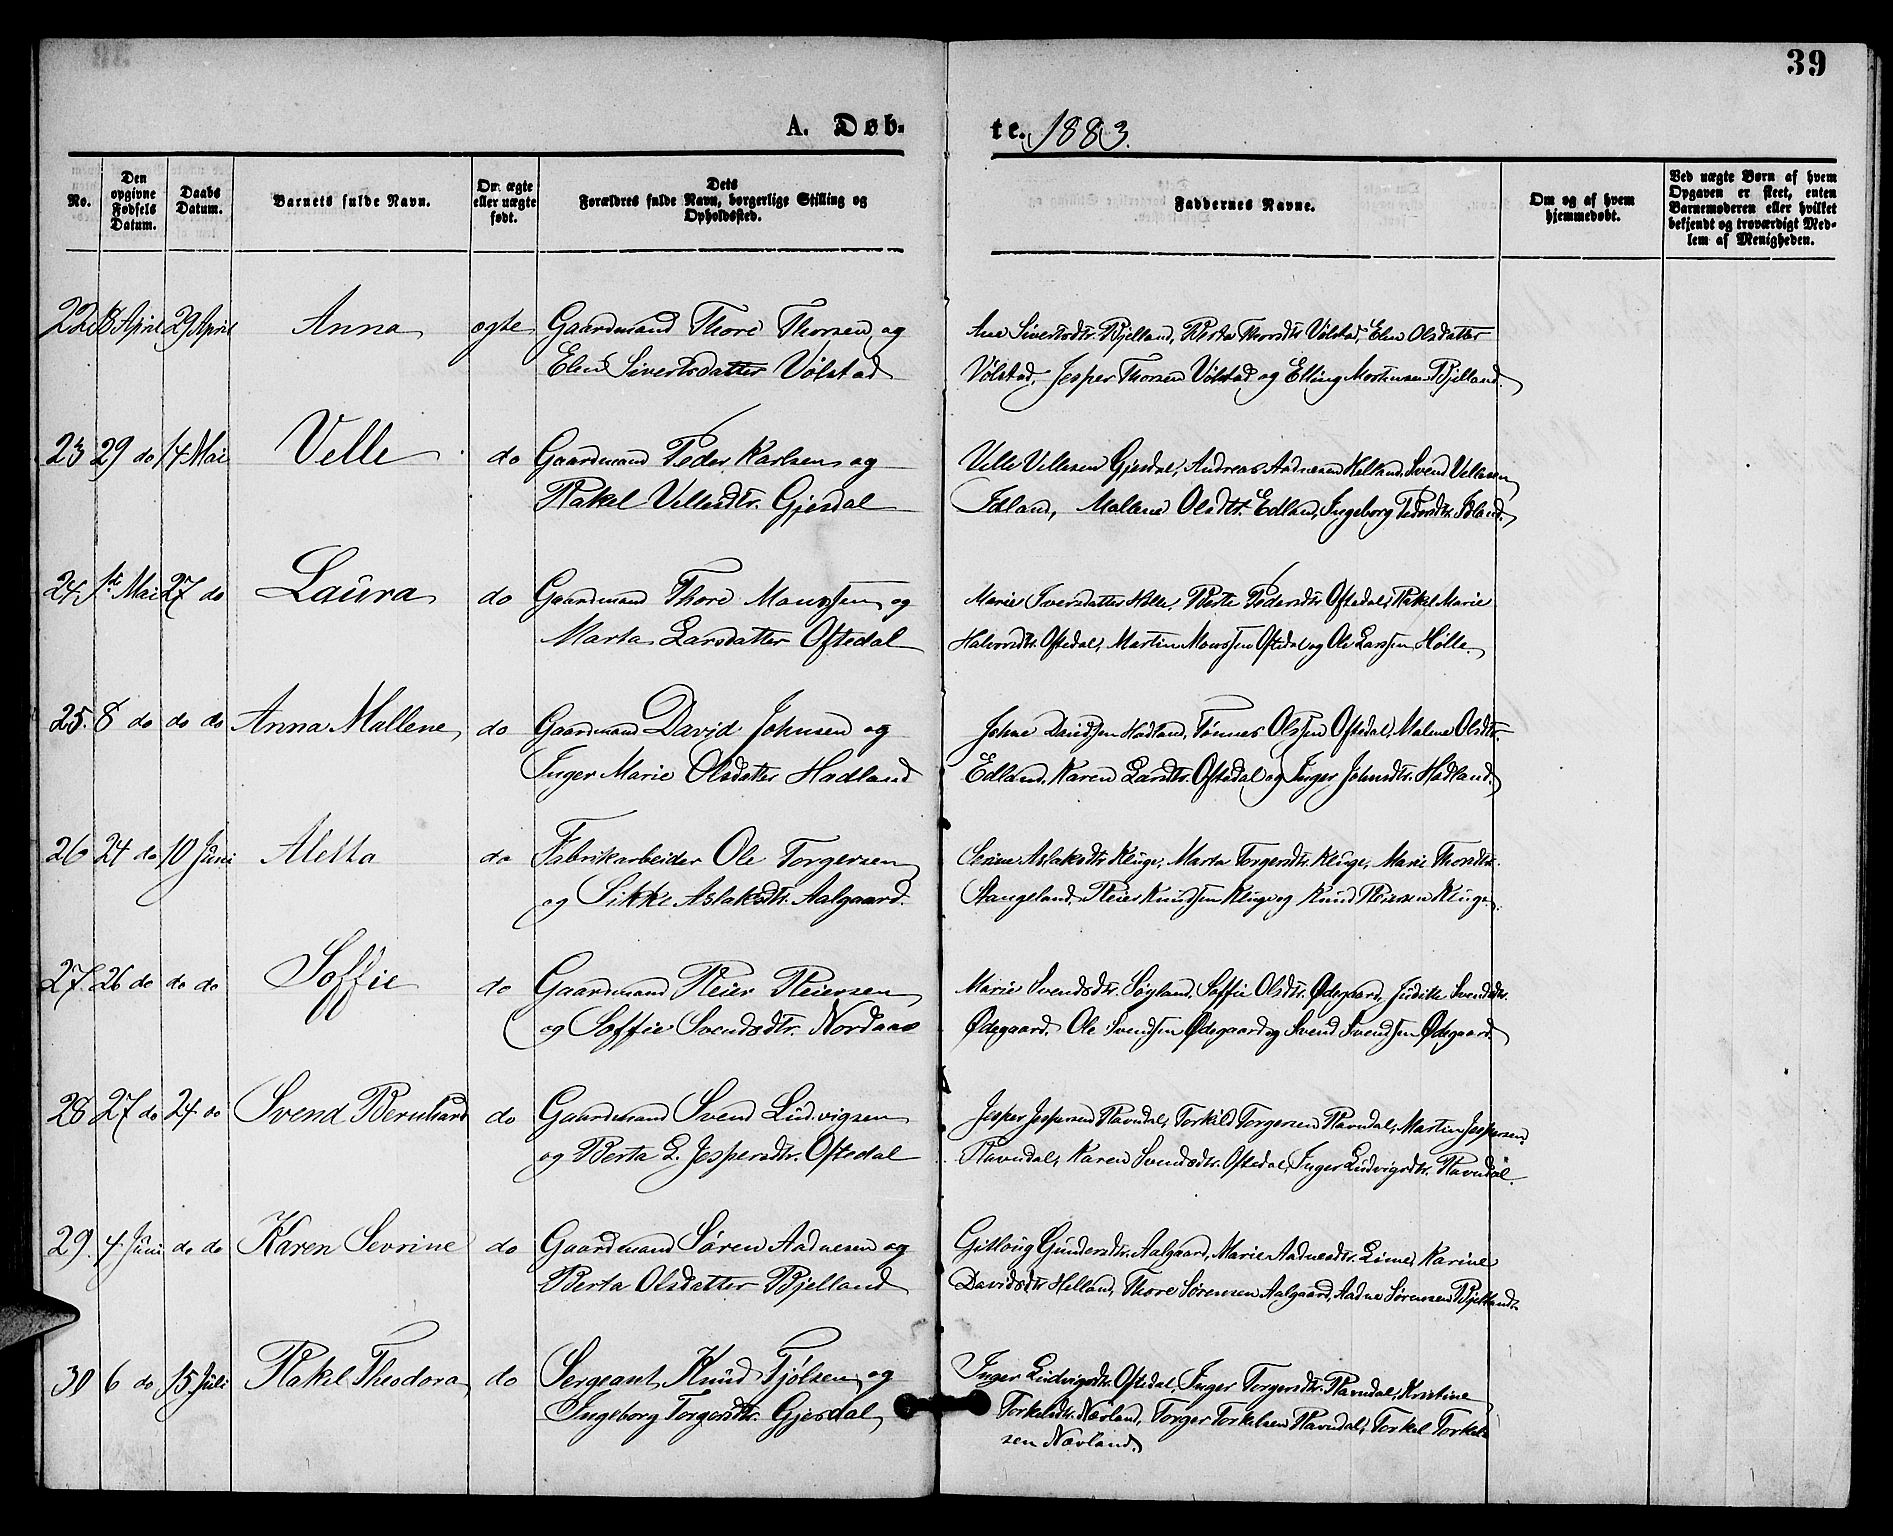 39
A. Døb-
te. 1883.
No.
Den opgivne Fødsels Datum.
Daabs Datum.
Barnets fulde Navn.
Om ægte eller uægte født.
Dets Forældres fulde Navn, borgerlige Stilling og Opholdssted.
Faddernes Navne.
Om og af hvem hjemmedøbt.
Ved uægte Børn af hvem Opgaven er skeet, enten Barnemoderen eller hvilket bekjendt og troværdigt Medlem af Menigheden.
22 13 April 29 April Anna ægte Gaardmand Thore Thorsen og
Elen Sivertsdatter Vølstad
Ane Sivertsdtr. Bjelland, Berta Thorsdtr. Vølstad, Elen Olsdatter
Vølstad, Jesper Thorsen Vølstad og Elling Mortensen Bjelland.
23 29 do 14 Mai Velle do Gaardmand Peder Karlsen og
Rakel Vellesdtr. Gjesdal
Velle Vellesen Gjesdal, Andreas Aadnesen Helland, Svend Vellesen
Idland, Mallene Olsdtr. Edland, Ingeborg Pedersdtr. Idland.
24. 1ste Mai 27 do Laura do Gaardmand Thore Monssen og
Marta Larsdatter Oftedal
Marie Iversdatter Holle, Berte Pedersdtr. Oftedal, Rakel Marie
Halvorsdtr. Oftedal, Martin Monssen Oftedal og Ole Larssen Holle.
25. 8 do do do Anna Mallene do Gaardmand David Johnsen og
Inger Marie Olsdatter Hadland
Johne Davidsen Hadland, Tønnes Olssen Oftedal, Malene Olsdtr.
Edland, Karen Larsdtr. Oftedal og Inger Johnsdtr. Hadland.
26 24 do 10 Juni Aletta do Fabrikarbeider Ole Torgersen
og Sikke Aslaksdtr. Aalgaard.
Serine Aslaksdtr. Kluge, Marta Torgersdtr. Kluge, Marie Thorsdtr.
Stangeland, Reier Knudsen Kluge og Knud Reiersen Kluge.
27. 26 do do do Soffie do Gaardmand Reier Reiersen
og Soffie Svendsdtr. Nordaas
Marie Svendsdtr. Søyland, Soffie Olsdtr. Ødegaard, Judite Svendsdtr.
Ødegaard, Ole Svendsen Ødegaard og Svend Svendsen Ødegaard.
28 27 do 24 do Svend Bernhard do Gaardmand Svend Ludvigsen
og Berta L. Jespersdtr. Oftedal
Jesper Jespersen Ravndal, Torkild Torgersen Ravndal, Martin Jespersen
Ravndal, Karen Svendsdtr. Oftedal, Inger Ludvigsdtr. Ravndal.
29. 4 Juni do do Karen Sevrine do Gaardmand Søren Aadnesen og
Berta Olsdatter Bjelland
Gitloug Gundersdtr. Aalgaard, Marie Aadnesdtr. Lime, Karine
Davidsdtr. Helland, Thore Sørensen Aalgaard, Aadne Sørensen Bjelland.
30 6 do 15 Juli Rakel Theodora do Sergeant Knud Tjølsen og
Ingeborg Torgersdtr. Gjesdal
Inger Ludvigsdtr. Oftedal, Inger Torgersdtr. Ravndal, Kristine
Torkelsdtr. Nævland, Torger Torkelsen Ravndal, Torkel Torkel-
sen Nævland.